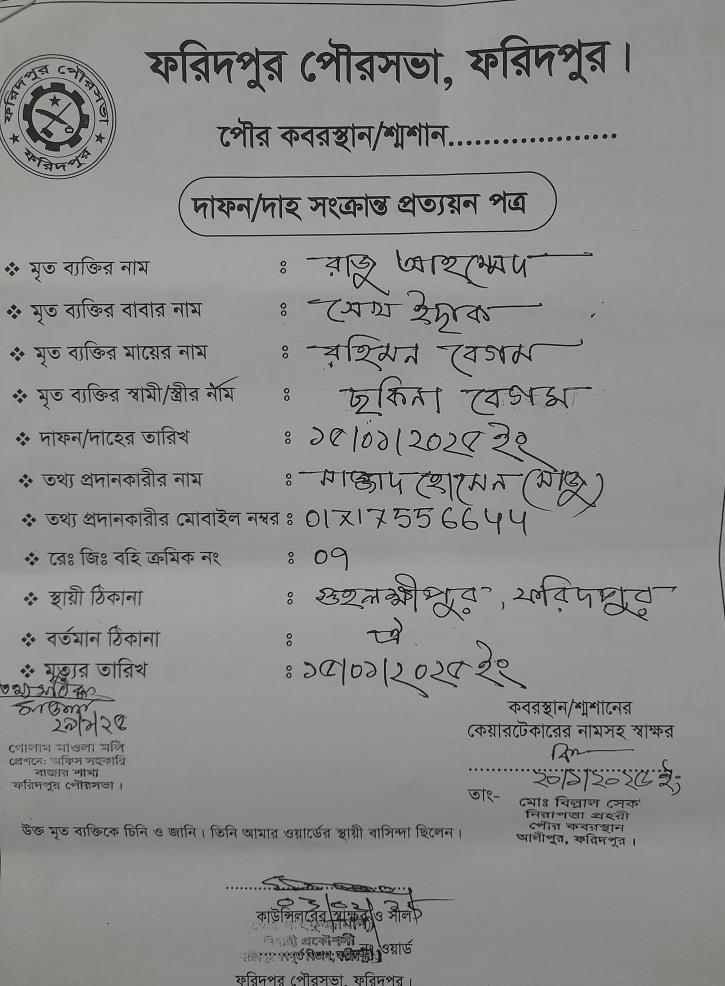 ফরিদপুর পৌরসভা, ফরিদপুর।
ফরিদপুর পৌরসভা
ফরিদপুর
পৌর কবরস্থান/শ্মশান...................
দাফন/দাহ সংক্রান্ত প্রত্যয়ন পত্র
❖ মৃত ব্যক্তির নাম : রাজু আহম্মেদ
❖ মৃত ব্যক্তির বাবার নাম : সেখ ইছাক
❖ মৃত ব্যক্তির মায়ের নাম : রহিমন বেগম
❖ মৃত ব্যক্তির স্বামী/স্ত্রীর নাম : ছকিনা বেগম
❖ দাফন/দাহের তারিখ : ১৫/০১/২০২৫ ইং
❖ তথ্য প্রদানকারীর নাম : সাজ্জাদ হোসেন (সাজু)
❖ তথ্য প্রদানকারীর মোবাইল নম্বর : 01717556644
❖ রেঃ জিঃ বহি ক্রমিক নং : ০৭
❖ স্থায়ী ঠিকানা : গুহলক্ষীপুর, ফরিদপুর
❖ বর্তমান ঠিকানা : ঐ
❖ মৃত্যুর তারিখ : ১৫/০১/২০২৫ ইং
তথ্য সঠিক
গোলাম মাওলা মনি
প্রেশনে: অফিস সহকারি
বাজার শাখা
ফরিদপুর পৌরসভা।
কবরস্থান/শ্মশানের
কেয়ারটেকারের নামসহ স্বাক্ষর
তাং- ২০/১/২০২৫ ইং
মোঃ বিল্লাল সেক
নিরাপত্তা প্রহরী
পৌর কবরস্থান
আলীপুর, ফরিদপুর।
উক্ত মৃত ব্যক্তিকে চিনি ও জানি। তিনি আমার ওয়ার্ডের স্থায়ী বাসিন্দা ছিলেন।
কাউন্সিলরের স্বাক্ষর ও সীল
নির্বাহী প্রকৌশলী
নং ওয়ার্ড
ফরিদপুর পৌরসভা, ফরিদপুর।